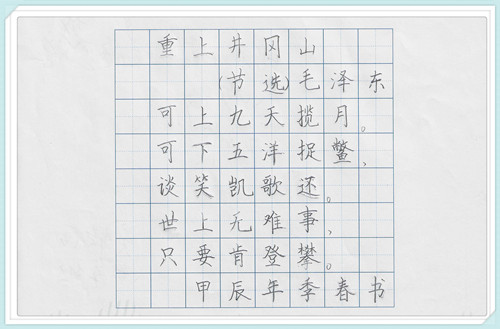 重上井冈山
(节选)毛泽东
可上九天揽月。
可下五洋捉鳖、
谈笑凯歌还。
世上无难事、
只要肯登攀。
甲辰年季春书